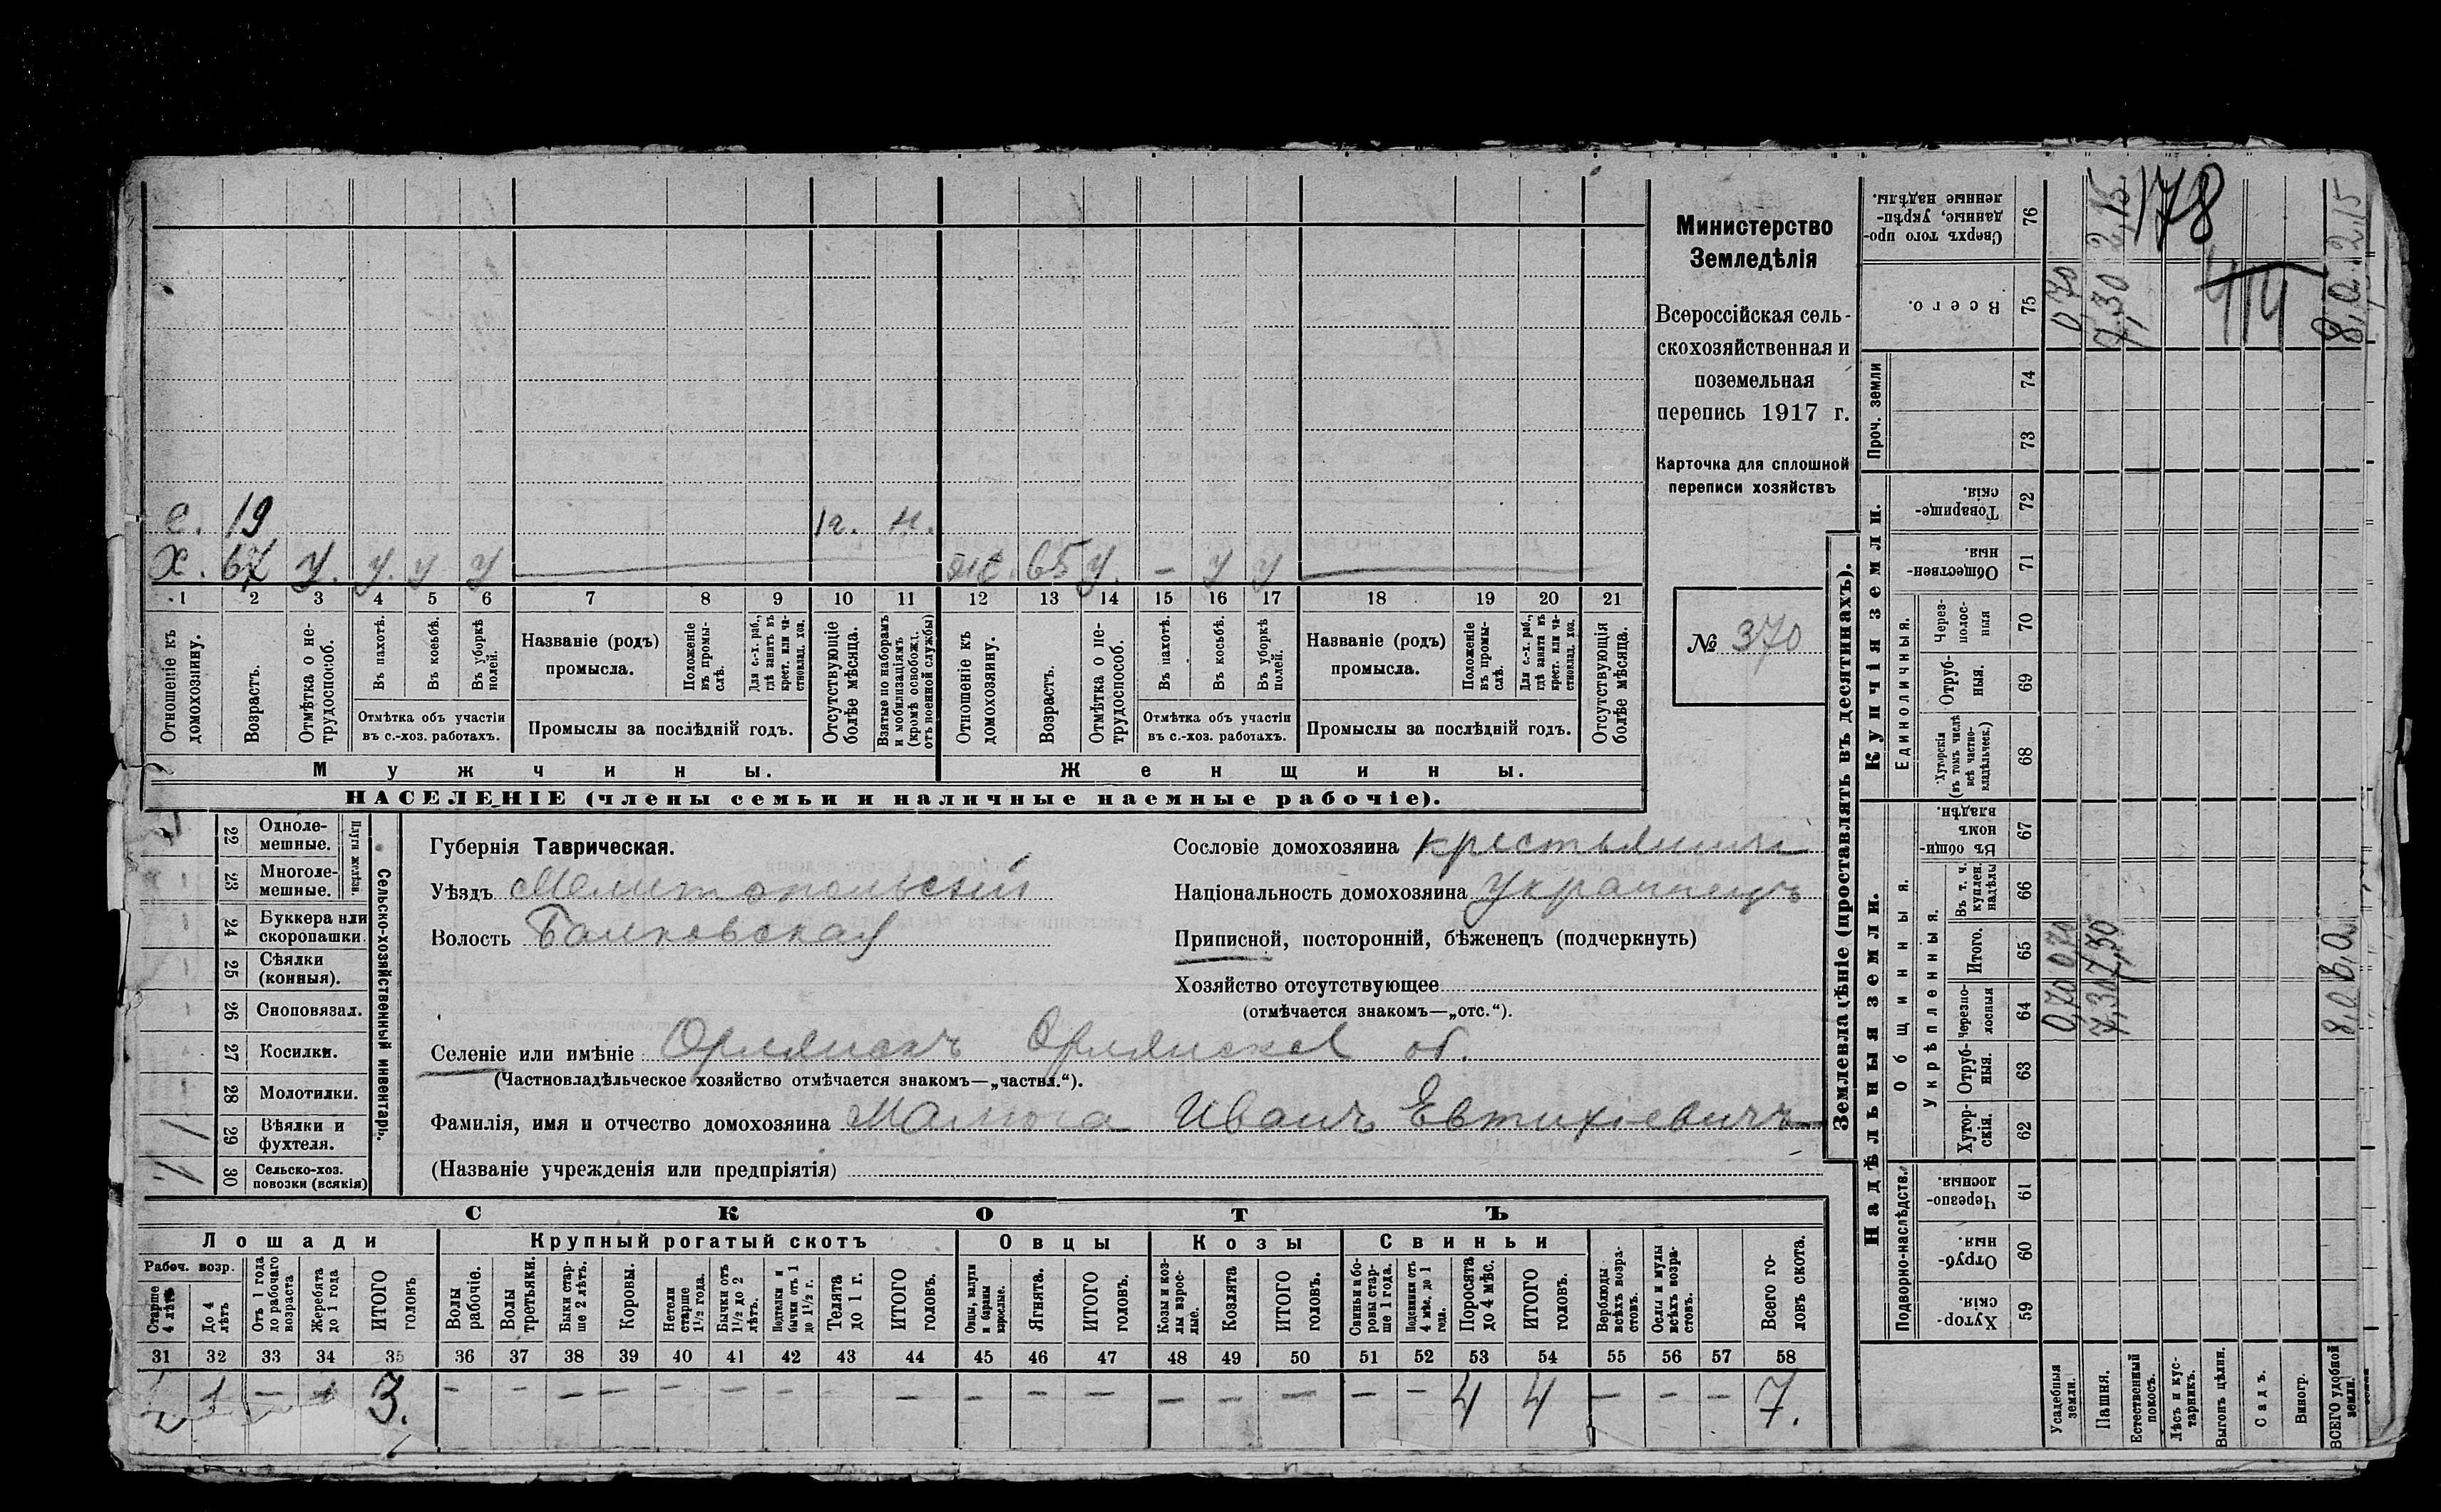 Министерство
Земледѣлія
Всероссійская сель-
скохозяйственная и
поземельная
перепись 1917 г.
Карточка для сплошной
переписи хозяйствъ
№ 370
с. 19 1г. н.
Х. 67 у. у. у у же. 65 у. – у у
1 2 3 4 5 6 7 8 9 10 11 12 13 14 15 16 17 18 19 20 21
Отношеніе къ домохозяину.
Возрастъ.
Отмѣтка о не-трудоспособ.
Въ пахотѣ.
Въ косьбѣ.
Въ уборкѣ полей.
Отмѣтка объ участіи
въ с.-хоз. работахъ.
Названіе (родъ)
промысла.
Положеніе въ промы-слѣ.
Для с.-х. раб., гдѣ занятъ въ крест. или ча-стновлад. хоз.
Промыслы за послѣдній годъ.
Отсутствующіе болѣе мѣсяца.
Взятые по наборамъ и мобилизаціямъ (кромѣ освобожд. отъ военной службы)
Отношеніе къ домохозяину.
Возрастъ.
Отмѣтка о не-трудоспособ.
Въ пахотѣ.
Въ косьбѣ.
Въ уборкѣ полей.
Отмѣтка объ участіи
въ с.-хоз. работахъ.
Названіе (родъ)
промысла.
Положеніе въ промы-слѣ.
Для с.-х. раб., гдѣ занята въ крест. или ча-стновлад. хоз.
Промыслы за послѣдній годъ.
Отсутствующія болѣе мѣсяца.
Мужчины. Женщины.
НАСЕЛЕНІЕ (члены семьи и наличные наемные рабочіе).
Сельско-хозяйственный инвентарь.
Плуги желѣзн.
22 Одноле-мешные.
23 Многоле-мешные.
24 Буккера или скоропашки.
25 Сѣялки (конныя).
26 Сноповязал.
27 Косилки.
28 Молотилки.
29 Вѣялки и фухтеля. 1
30 Сельско-хоз. повозки (всякія)
Губернія Таврическая.
Уѣздъ Мелитопольскій
Волость Балковская
Сословіе домохозяина крестьянинъ
Національность домохозяина Украинецъ
Приписной, посторонній, бѣженецъ (подчеркнуть)
Хозяйство отсутствующее
(отмѣчается знакомъ—„отс.“).
Селеніе или имѣніе Орлянскъ Орлянское об.
(Частновладѣльческое хозяйство отмѣчается знакомъ—„частвл.“).
Фамилія, имя и отчество домохозяина Малюга Иванъ Евтихіевичъ
(Названіе учрежденія или предпріятія)
СКОТЪ
Лошади Крупный рогатый скотъ Овцы Козы Свиньи
Рабоч. возр.
Старше 4 лѣтъ
До 4 лѣтъ
Отъ 1 года до рабочаго возраста
Жеребята до 1 года
ИТОГО головъ
Волы рабочіе.
Волы третьяки.
Быки стар-ше 2 лѣтъ.
Коровы.
Нетели старше 1½ года.
Бычки отъ 1½ до 2 лѣтъ.
Подтелки и бычки отъ 1 до 1½ г.
Телята до 1 г.
ИТОГО головъ.
Овцы, валухи и бараны взрослые.
Ягнята.
ИТОГО головъ.
Козы и коз-лы взрос-лые.
Козлята
ИТОГО головъ.
Свиньи и бо-ровы стар-ше 1 года.
Подсвинки отъ 4 мѣс. до 1 года.
Поросята до 4 мѣс.
ИТОГО головъ.
Верблюды всѣхъ возра-стовъ.
Ослы и мулы всѣхъ возра-стовъ.
Всего го-ловъ скота.
31 32 33 34 35 36 37 38 39 40 41 42 43 44 45 46 47 48 49 50 51 52 53 54 55 56 57 58
2 1 – – 3. – – – – – – – – – – – – – – – – 4 4 – – – 7.
Землевладѣніе (проставлять въ десятинахъ).
Купчія земли.
Надѣльныя земли.
Сверхъ того про-данные, укрѣп-ленные надѣлы. 76
Всего. 75
Проч. земли 74 73
Товарище-скія. 72
Обществен-ныя. 71
Единоличныя.
Через-полос-ныя 70
Отруб-ныя. 69
Хуторскія (въ томъ числѣ всѣ частно-владѣльческ.) 68
Общинныя.
Въ общин-номъ владѣн. 67
Укрѣпленныя.
Въ т. ч. куплен. надѣлы 66
Итого. 65
Черезпо-лосныя 64
Отруб-ныя. 63
Хутор-скія. 62
Подворно-наслѣдств.
Черезпо-лосныя. 61
Отруб-ныя. 60
Хутор-скія. 59
Усадебныя земли. 0,70 0,70 0,70
Пашня. 7,30 7,30 7,30 2,15
Естественный покосъ.
Лѣсъ и кус-тарникъ.
Выгонъ цѣлин.
Садъ.
Виногр.
ВСЕГО удобной земли. 8,0 8,0 8,0 2,15
178
414